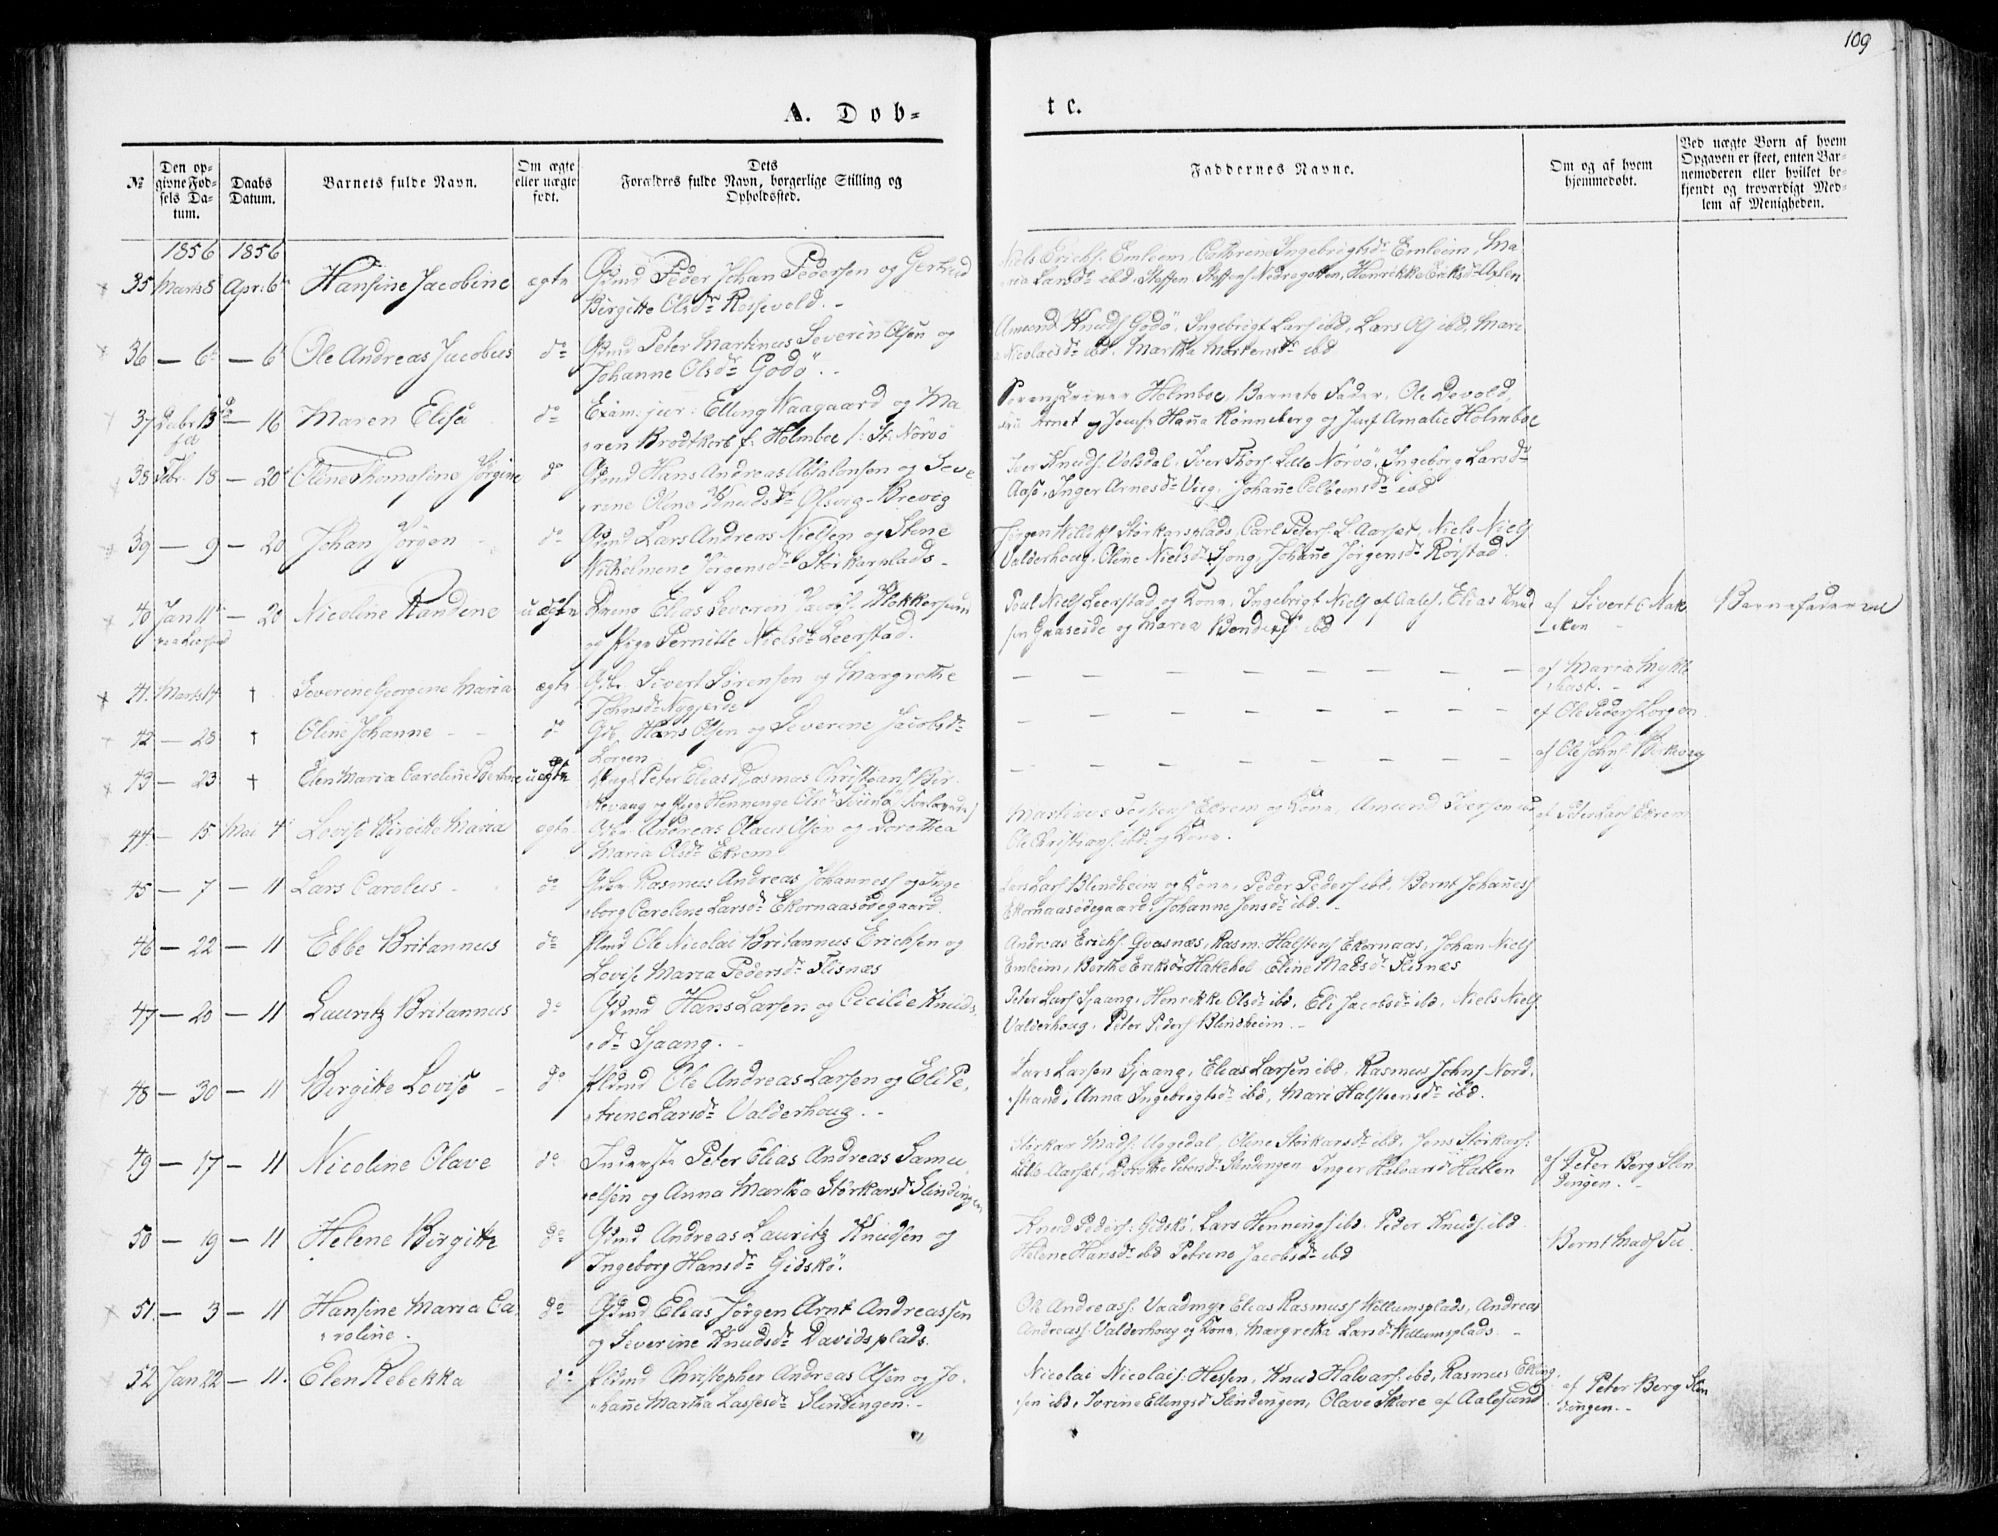 109
A. Döb-
te.
№
Den op-
givne Föd-
sels Da-
tum.
Daabs
Datum.
Barnets fulde Navn.
Om ægte
eller uægte
födt.
Dets
Forældres fulde Navn, borgerlige Stilling og
Opholdssted.
Faddernes Navne.
Om og af hvem
hjemmedöbt.
Ved uægte Börn af hvem
Opgaven er skeet, enten Bar-
nemoderen eller hvilket be-
kjendt og troværdigt Med-
lem af Menigheden.
1856 1856
35 Marts 8 Apr: 6 Hansine Jacobine ægte Gdmd Peder Johan Pedersen og Gertrud
Birgitte Olsdr Rossevold.
Niels Erichs: Emleim, Cathrine Ingebrigtsdr Emleim, Ma-
ria Larsdr ibd, Steffen Steffens Nedregotten, Henrikke Eriksdr Axlen
36 — 6 — 6 Ole Andreas Jacobus do Gdmd Peter Martinus Severin Olsen og
Johanne Olsdr Godö.
Amund Knuds Godö, Ingebrigt Lars ibd, Lars Ols ibd, Mari
Nicolaisdr ibd, Martha Mortensdr ibd
37 Debr 13 — 16 Maren Elisa do Exam: jur: Elling Waagaard og Ma-
ren Brodtkorb f: Holmboe /: St: Nörvö
Sorenskriver Holmboe, Barnets Fader, Ole Devold,
Arnet og Jomfr Hanna Rönneberg og Jmf Amalie Holmboe
38 Febr. 18 — 20 Oline Thomasine Jörgine do Gdmd Hans Andreas Absalonsen og Seve-
rine Oline Knudsdr Ofsvig-Brevig
Iver Knuds: Volsdal, Iver Thors: Lille Nörvö, Ingeborg Larsdr
Aase, Inger Arnesdr Vig, Johanne ibd
39 — 9 — 20 Johan Jörgen do Gdmd Lars Andreas Nielsen og Stene
Wilhelmine Jörgensdr Störkarplads
Jörgen Willeks Störkarsplads, Carl Peters: L Aarset, Niels Niels
Valderhoug, Oline Nielsdr Gjong, Johanne Jörgensdr Rörstad.
40 Jan 11 — 20 Nicoline Randine uægte Dreng Elias Severin Jacobs: Klokkersund
og Pige Pernille Nielsdr Leerstad.
Poul Niels Leerstad og Kone, Ingebrigt Niels af Aales, Elias Knud-
sen Gaaseide og Maria ibd
af Sivert C Mak-
ken
Barnefaderen
41 Marts 14 † Severine Georgine Maria ægte Gbr Sivert Sörensen og Margrethe
Johnsdr Nygjerde
— — — — — — —
af Maria Mykle-
bust.
42 — 28 † Oline Johanne do Gbr Hans Olsen og Severine Jacobsdr
Lorgen
— — — — — — —
af Ole Peders Lorgen
43 — 23 † Elen Maria Caroline Bertine uægte Ungk Peter Elias Rasmus Christians Bir-
kevaag og Pige Henninge Olsdr
— — — — — — —
af Ole Johns: Birkevog
44 — 15 Mai 4 Lovise Birgitte Maria ægte Gbr Andreas Olaus Olsen og Dorothea
Maria Olsdr Ekrem
Martinus Ekrem og Kone, Amund Iversen ibd
Ole Christians: ibd og Kone.
af Peter Lars Ekrem
45 — 7 — 11 Lars Carolus do Gbr Rasmus Andreas Johannes og Inge-
borg Caroline Larsdr Ekornaasödegaard.
Lars Lars Blindheim og Kone, Peder Peders ibd, Bernt Johannes
Ekornaasödegaard, Johanne Jensdr ibd.
46 — 22 — 11 Ebbe Britannus do Plmd Ole Nicolai Britannus Erichsen og
Lovise Maria Pedersdr Flisnæs
Andreas Erichs: Gvasnæs, Rasm: Halstens Ekornaas, Johan Niels
Emleim, Berthe Eriksdr Hatlehol Eline Madsdr Flisnæs
47 — 20 — 11 Lauritz Britannus do Gdmd Hans Larsen og Cicilie Knuds-
dr Gjaang.
Peter Lars Gjaang, Henrikke Olsdr ibd, Eli Jacobsdr ibd, Niels Niels
Valderhoug, Peter Peders Blindheim.
48 — 30 — 11 Birgitte Lovise do Plmd Ole Andreas Larsen og Eli Pe-
trine Larsdr Valderhoug.
Lars Larsen Gjaang, Elias Larsen ibd, Rasmus Johns Nord-
strand, Anna Ingebrigtsdr ibd, Mari Halstensdr ibd.
49 — 17 — 11 Nicoline Olave do Inderste Peter Elias Andreas Samu-
elsen og Anna Martha Störkarsdr Slindingen
Störkar Mads: Uggedal, Oline Störkarsdr ibd, Jens Störkars:
Lille Aarset, Dorothe Petersdr Slindingen Inger Halvarsdr Hatlen
af Peter Berg Slin-
dingen.
50 — 19 — 11 Helene Birgitte do Gdmd Andreas Lauritz Knudsen og
Ingeborg Hansdr Gidskö.
Knud Peders: Gidskö, Lars Hennings ibd, Peder Knuds ibd
Helene Hansdr ibd Petrine Jacobsdr ibd
Bernt Mads
51 — 3 — 11 Hansine Maria Ca-
roline.
do Gdmd Elias Jörgen Arnt Andreassen
og Severine Knudsdr Davidsplads.
Ole Andreass: Vaadmyr Elias Rasmuss Willumsplads, Andreas
Andreass: Valderhoug og Kone, Margrethe Larsdr Willumsplads.
52 Jan 22 — 11. Elen Rebekka do Plmd Christopher Andreas Olsen og Jo-
hanne Martha Lassesdr Slindingen.
Nicolai Nicolais: Hessen, Knud Halvars: ibd, Rasmus Elling-
sen ibd, Sorine Ellingsdr Slindingen, Olave Skare af Aalesund
af Peter Berg Slin-
dingen.